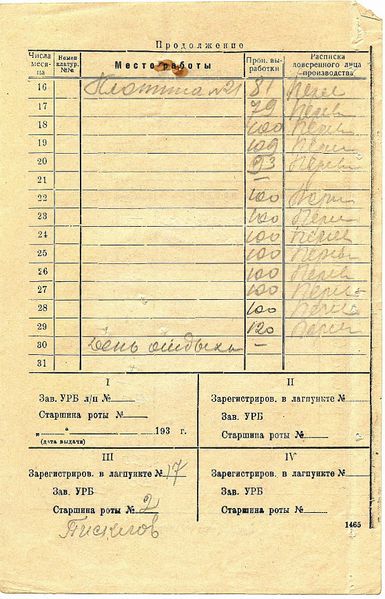 Продолжение
Числа месяца Номенклатур. №№ Место работы Проц. выработки Расписка доверенного лица производства
16 Плотина №21 81
17 79
18 100
19 109
20 93
21 —
22 100
23 100
24 100
25 100
26 100
27 100
28 100
29 120
30 День отдыха —
31
I
Зав. УРБ л/п №
Старшина роты №
„ “ 193 г.
(дата выдачи)
II
Зарегистриров. в лагпункте №
Зав. УРБ
Старшина роты №
III
Зарегистриров. в лагпункте № 17
Зав. УРБ
Старшина роты № 2
IV
Зарегистриров. в лагпункте №
Зав. УРБ
Старшина роты №
1465